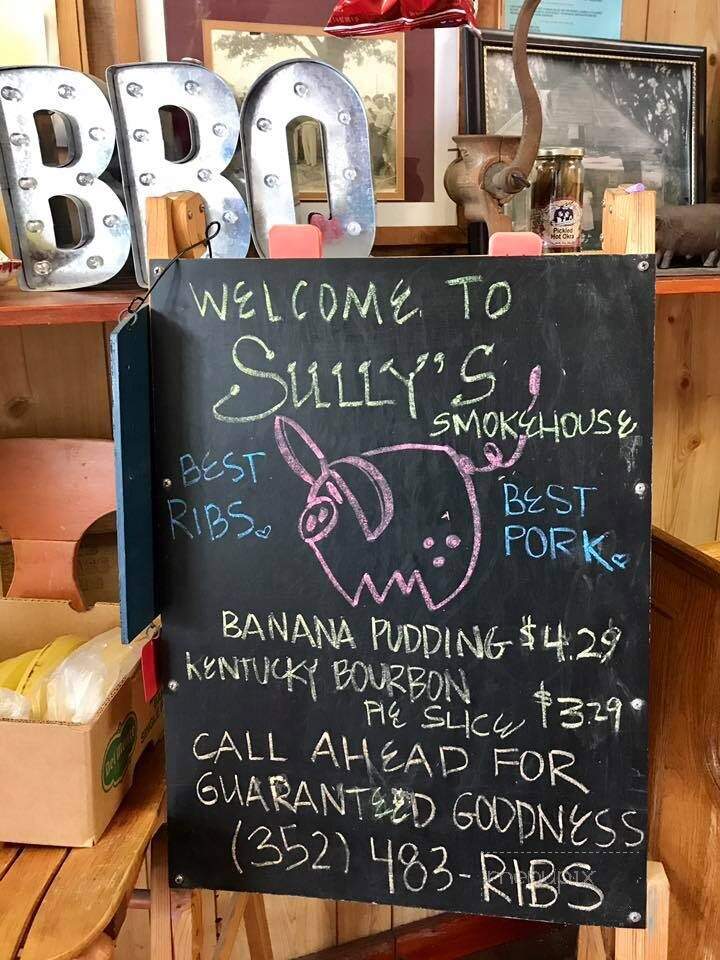 BBQ
Pickled
Hot Okra
WELCOME TO
SULLY'S
SMOKEHOUSE
BEST
RIBS
BEST
PORK
BANANA PUDDING $4.29
KENTUCKY BOURBON
PIE SLICE $3.29
CALL AHEAD FOR
GUARANTEED GOODNESS
(352) 483-RIBS
menupix